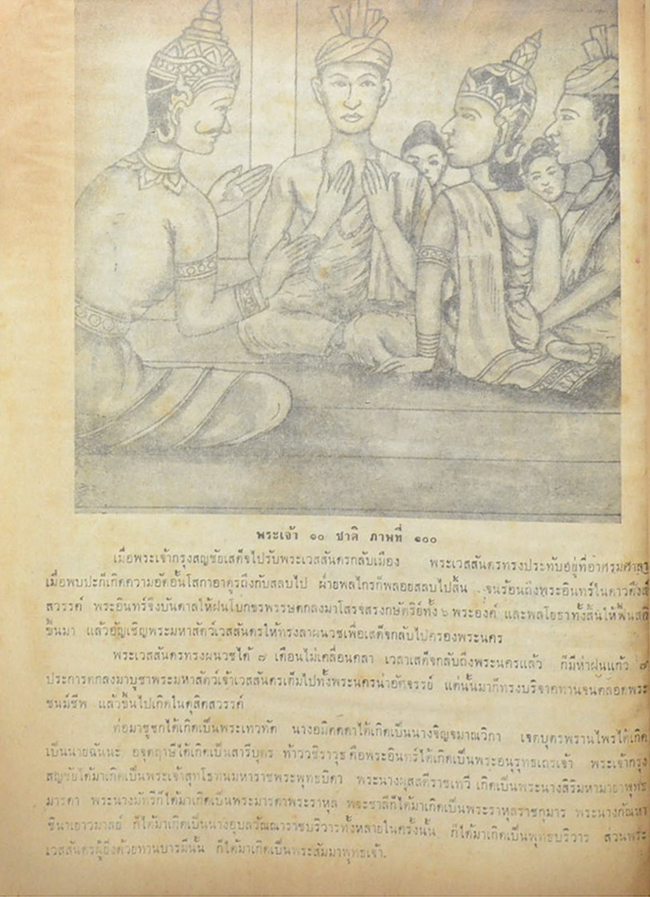 พระเจ้า ๑๐ ชาติ ภาพที่ ๑๐๐
เมื่อพระเจ้ากรุงสญชัยเสด็จไปรับพระเวสสันดรกลับเมือง พระเวสสันดรทรงประทับอยู่ที่
เมื่อพบปะก็เกิดความอัดอั้นโสกาอาดูรถึงกับสลบไป ฝ่ายพลไกรก็พลอยสลบไปสิ้น จนร้อนถึงพระอินทร์ในดาวดึงส์
สวรรค์ พระอินทร์จึงบันดาลให้ฝนโบกขรพรรษตกลงมาโสรจสรงกษัตริย์ทั้ง ๖ พระองค์ และพลโยธาทั้งสิ้นให้ฟื้นสติ
ขึ้นมา แล้วอัญเชิญพระมหาสัตว์เวสสันดรให้ทรงลาผนวชเพื่อเสด็จกลับไปครองพระนคร
พระเวสสันดรทรงผนวชได้ ๗ เดือนไม่เคลื่อนคลา เวลาเสด็จกลับถึงพระนครแล้ว ก็มีห่าฝนแก้ว ๗
ประการตกลงมาบูชาพระมหาสัตว์เจ้าเวสสันดรเต็มไปทั้งพระนครน่าอัศจรรย์ แต่นั้นมาก็ทรงบริจาคทานจนตลอดพระ
ชนม์ชีพ แล้วขึ้นไปเกิดในดุสิตสวรรค์
ต่อมาชูชกได้เกิดเป็นพระเทวทัต นางอมิตตดาได้เกิดเป็นนางจิญจมาณวิกา เจตบุตรพรานไพรได้เกิด
เป็นนายฉันนะ อจุตฤาษีได้เกิดเป็นสารีบุตร ท้าววชิราวุธ คือพระอินทร์ได้เกิดเป็นพระอนุรุทธเถรเจ้า พระเจ้ากรุง
สญชัยได้มาเกิดเป็นพระเจ้าสุทโธทนมหาราชพระพุทธบิดา พระนางผุสสดีราชเทวี เกิดเป็นนางสิริมหามายาพุทธ
มารดา พระนางมัทรีก็ได้มาเกิดเป็นพระมารดาพระราหุล พระชาลีก็ได้มาเกิดเป็นพระราหุลราชกุมาร พระนางกัณหา
ชินาเยาวมาลย์ ก็ได้มาเกิดเป็นนางอุบลวัณณาราชบริวารทั้งหลายในครั้งนั้น ก็ได้มาเกิดเป็นพุทธบริวาร ส่วนพระ
เวสสันดรผู้ยิ่งด้วยทานบารมีนั้น ก็ได้มาเกิดเป็นพระสัมมาพุทธเจ้า.